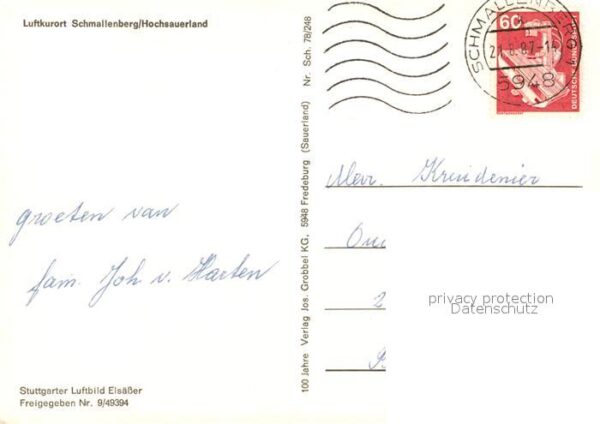 Luftkurort Schmallenberg/Hochsauerland
groeten van
fam. Joh v. Harten
Stuttgarter Luftbild Elsäßer
Freigegeben Nr. 9/49394
100 Jahre Verlag Jos. Grobbel KG, 5948 Fredeburg (Sauerland) Nr. Sch. 78/248
60
DEUTSCHE BUNDESPOST
SCHMALLENBERG 1
5948
privacy protection
Datenschutz